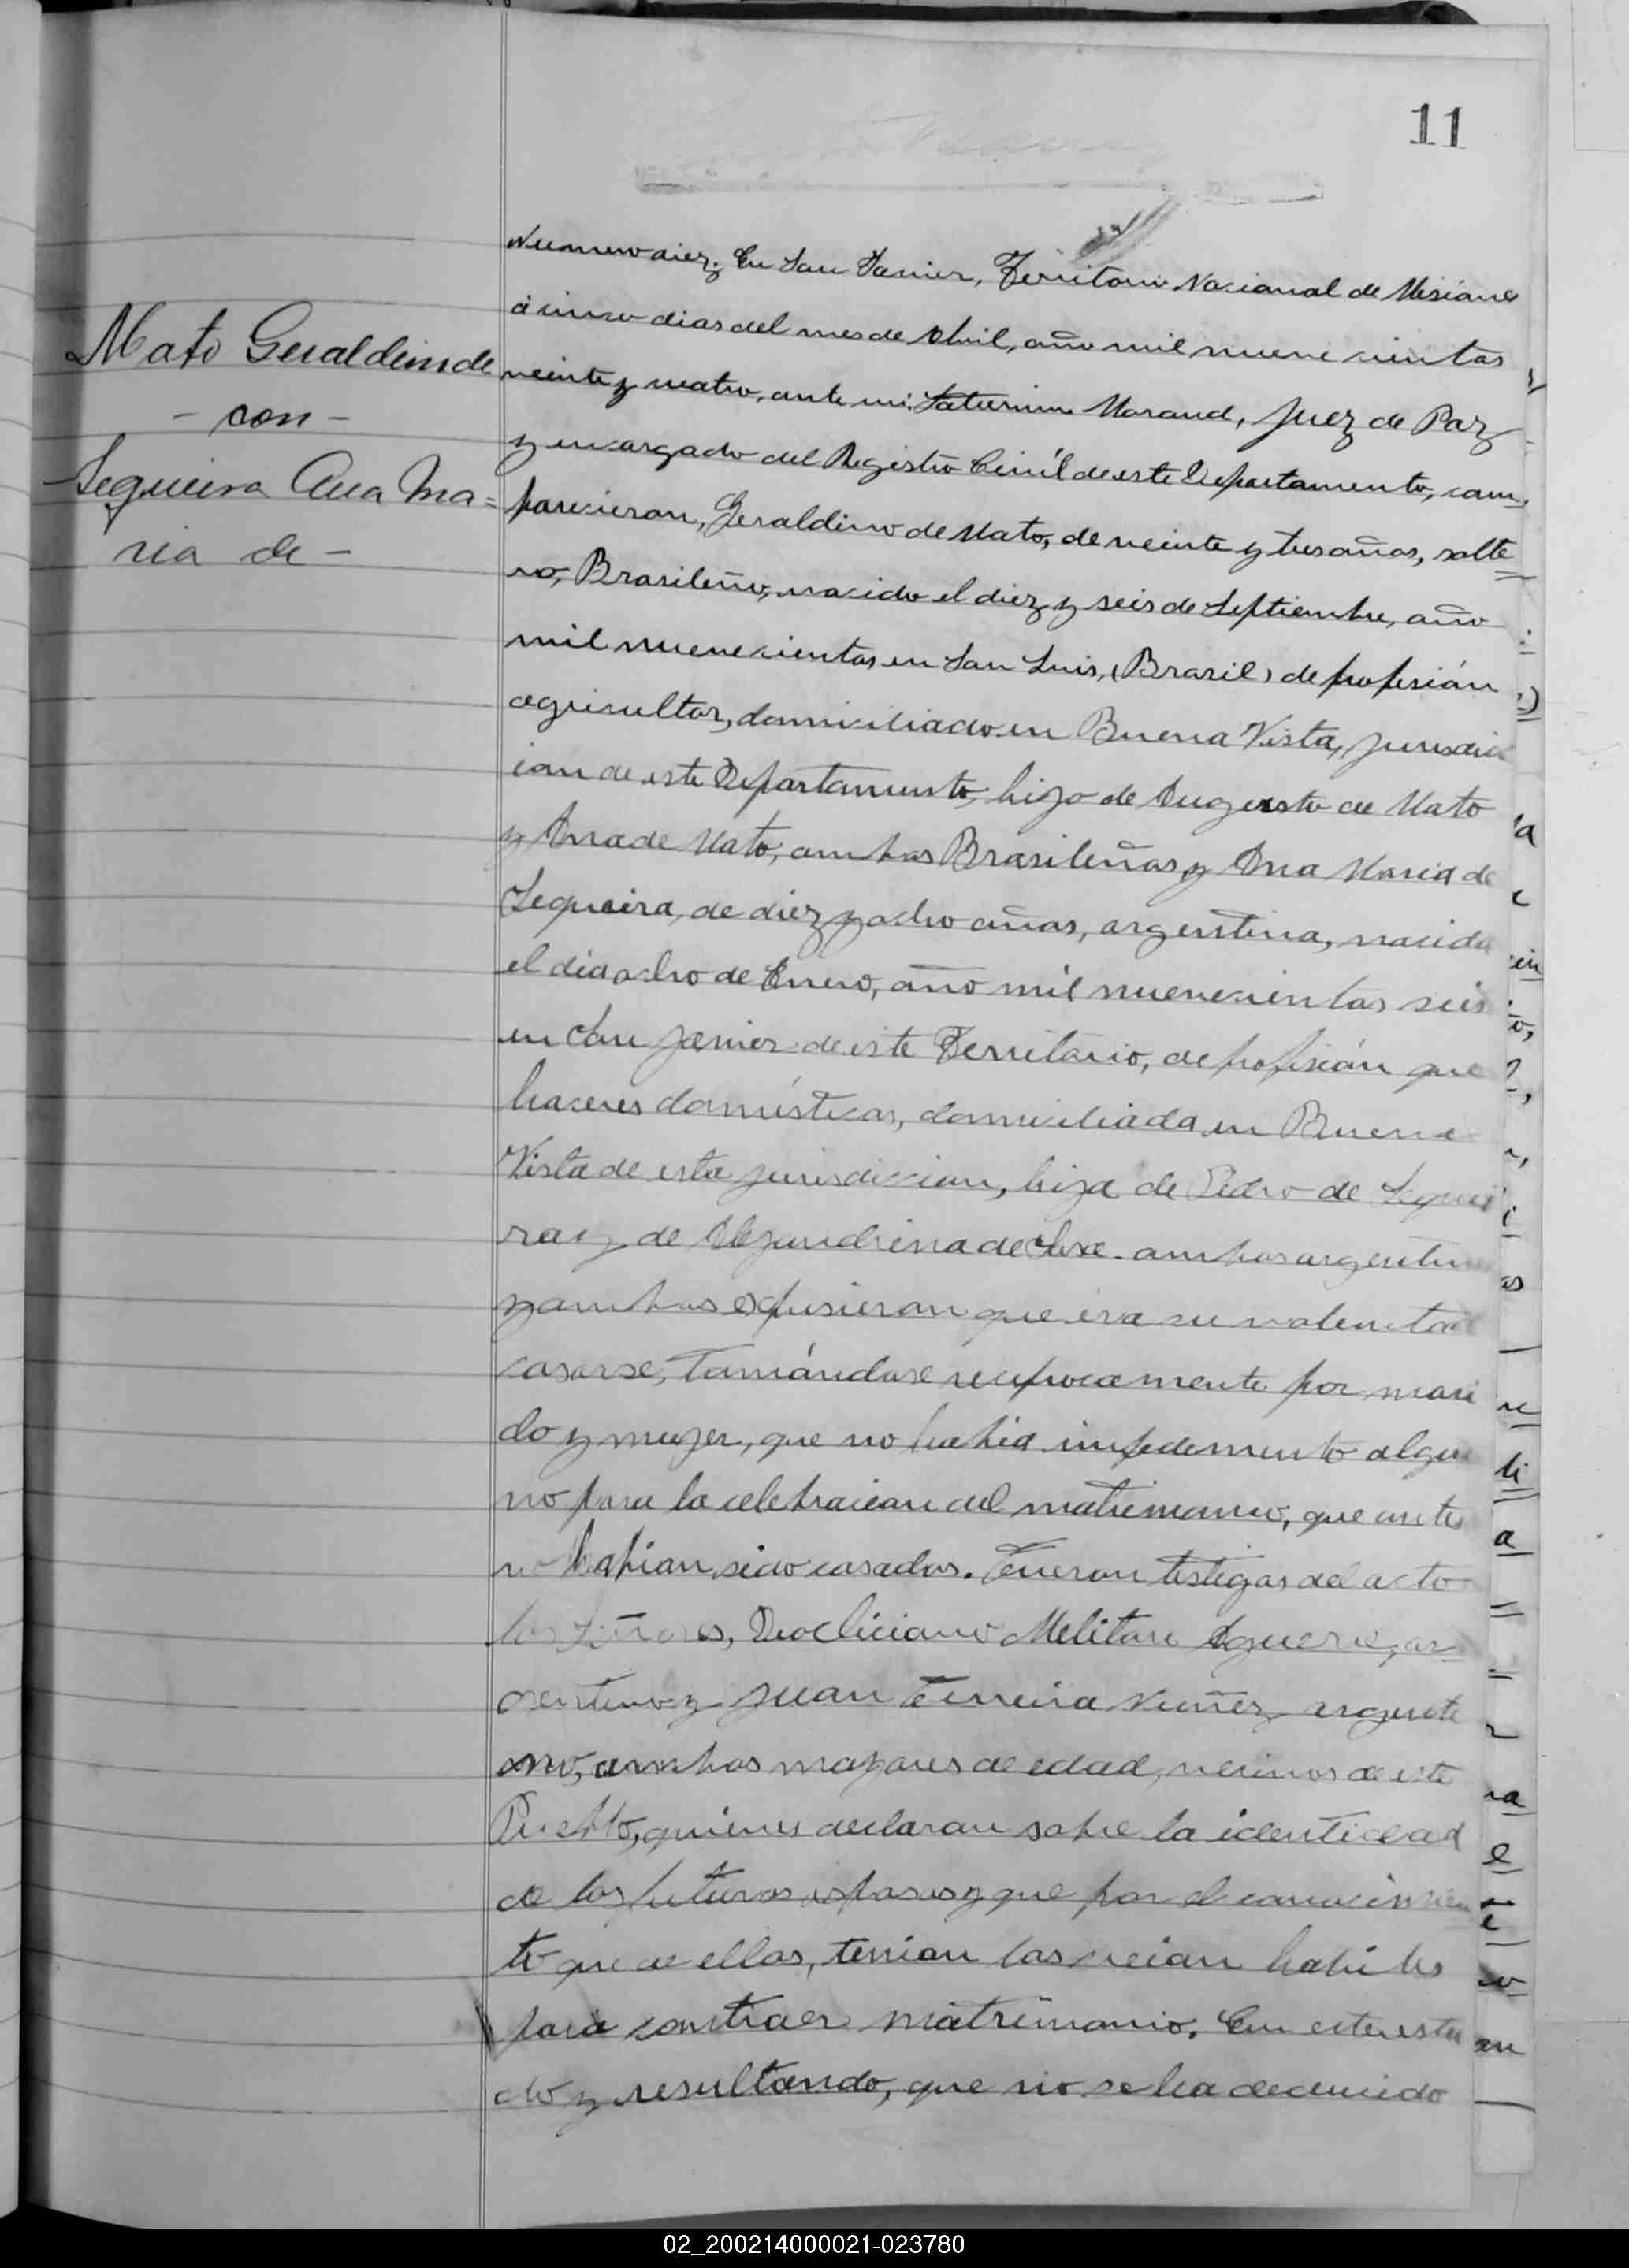 11
Mato Geraldino de
- con -
Sequeira Ana Ma=
ria de -
Numero diez. En San Javier, Territorio Nacional de Misiones
á cinco dias del mes de Abril, año mil nueve cientos
veinte y cuatro, ante mi: Saturnino Morand, Juez de Paz
y encargado del Registro Civil de este Departamento, com,
parecieron, Geraldino de Mato, de veinte y tres años, solte
ro, Brasileño, nacido el diez y seis de Septiembre, año
mil nuevecientos en San Luis, (Brasil) de profesión
agricultor, domiciliado en Buena Vista, jurisdic
ion de este Departamento, hijo de Augusto de Mato
y Ana de Mato, ambos Brasileños y Ana Maria de
Sequeira, de diez y ocho años, argentina, nacida
el dia ocho de Enero, año mil nuevecientos seis
en San Javier de este Territorio, de profesión que
haceres domésticos, domiciliada en Buena
Vista de esta jurisdiccion, hija de Pedro de Sequei
ra y de Alejandrina de ambos argentinos
y ambos expusieron que era su voluntad
casarse, Tomándose reciprocamente por mari
do y mujer, que no habia impedemento algu
no para la celebracion del matrimonio, que antes
no habian sido casados. Fueron testigos del acto
los Señores, Deocliciano Meliton Aguere, ar
gentino y Juan Ferreira Nuñez argenti
no, ambos mayores de edad, vecinos de este
Pueblo, quienes declaran sobre la identidad
de los futuros esposos y que por el conocimien
to que de ellos, tenian los creian habiles
para contraer matrimonio. En este esta
do y resultando, que no se ha deducido
02_200214000021-023780